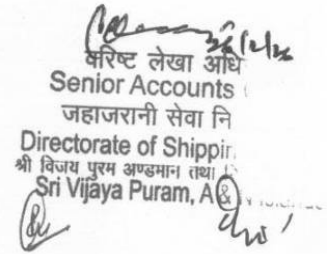 वरिष्ठ लेखा अधि
Senior Accounts
जहाजरानी सेवा नि
Directorate of Shippin
श्री विजय पुरम अण्डमान तथा
Sri Vijaya Puram, A &